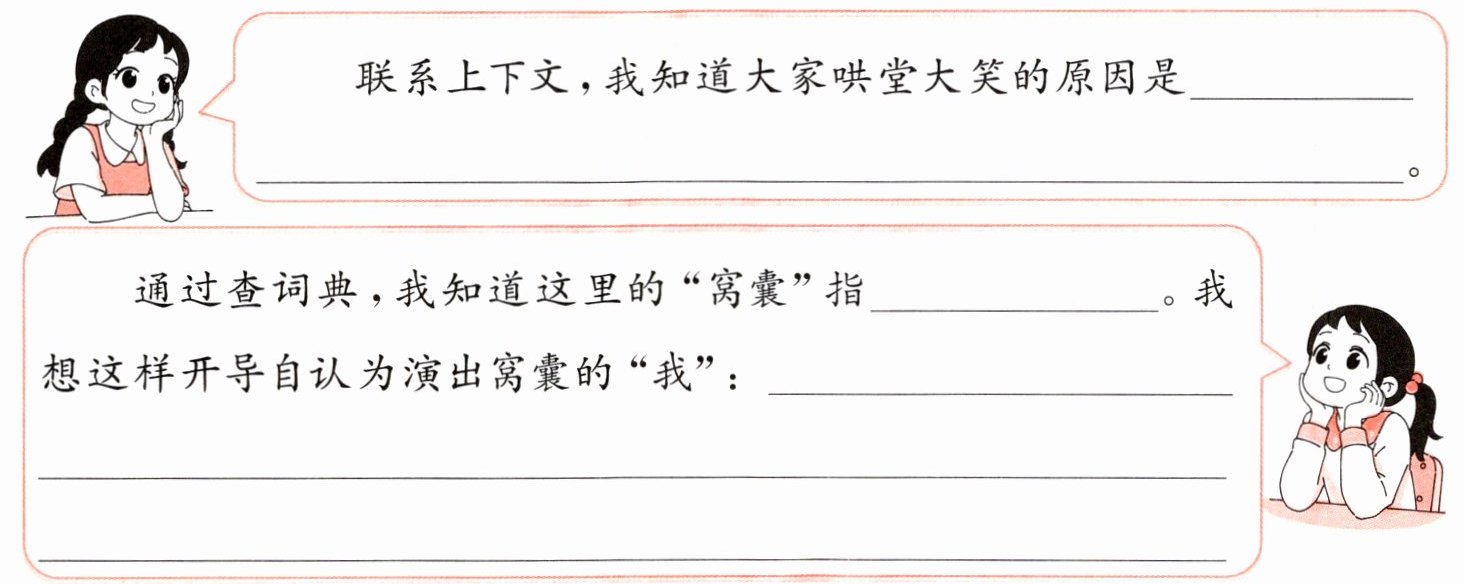 联系上下文,我知道大家哄堂大笑的原因是____________
____________。
通过查词典,我知道这里的“窝囊”指____________。我
想这样开导自认为演出窝囊的“我”:____________